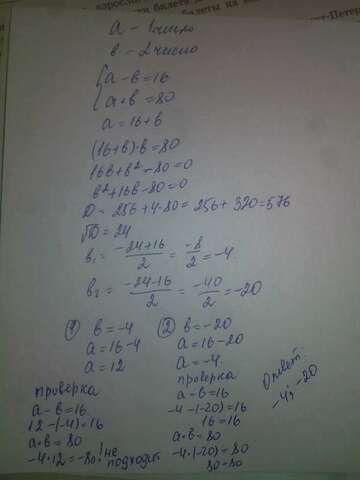 взрослы
билета
билеты на
ет-Петер
а - 1число
в - 2число
{а-в=16
{а•в=80
а=16+в
(16+в)·в=80
16в+в²-80=0
в²+16в-80=0
D=256+4·80=256+320=576
√D=24
в₁=(-24+16)/2=-8/2=-4
в₂=(-24-16)/2=-40/2=-20
① в=-4
а=16-4
а=12
проверка
а-в=16
12-(-4)=16
а•в=80
-4•12=-80! не
подходит
② в=-20
а=16-20
а=-4
проверка
а-в=16
-4-(-20)=16
16=16
а•в=80
-4•(-20)=80
80=80
Ответ:
-4; -20